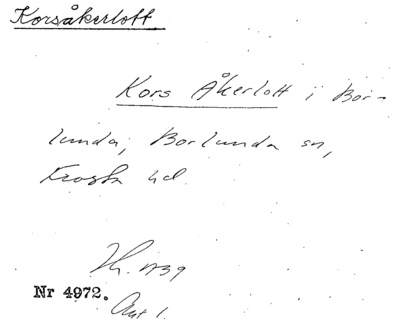 Korsåkerlott
Kors Åkerlott i Bor-
lunda, Borlunda sn,
Frosta hd.
Nr 4972.